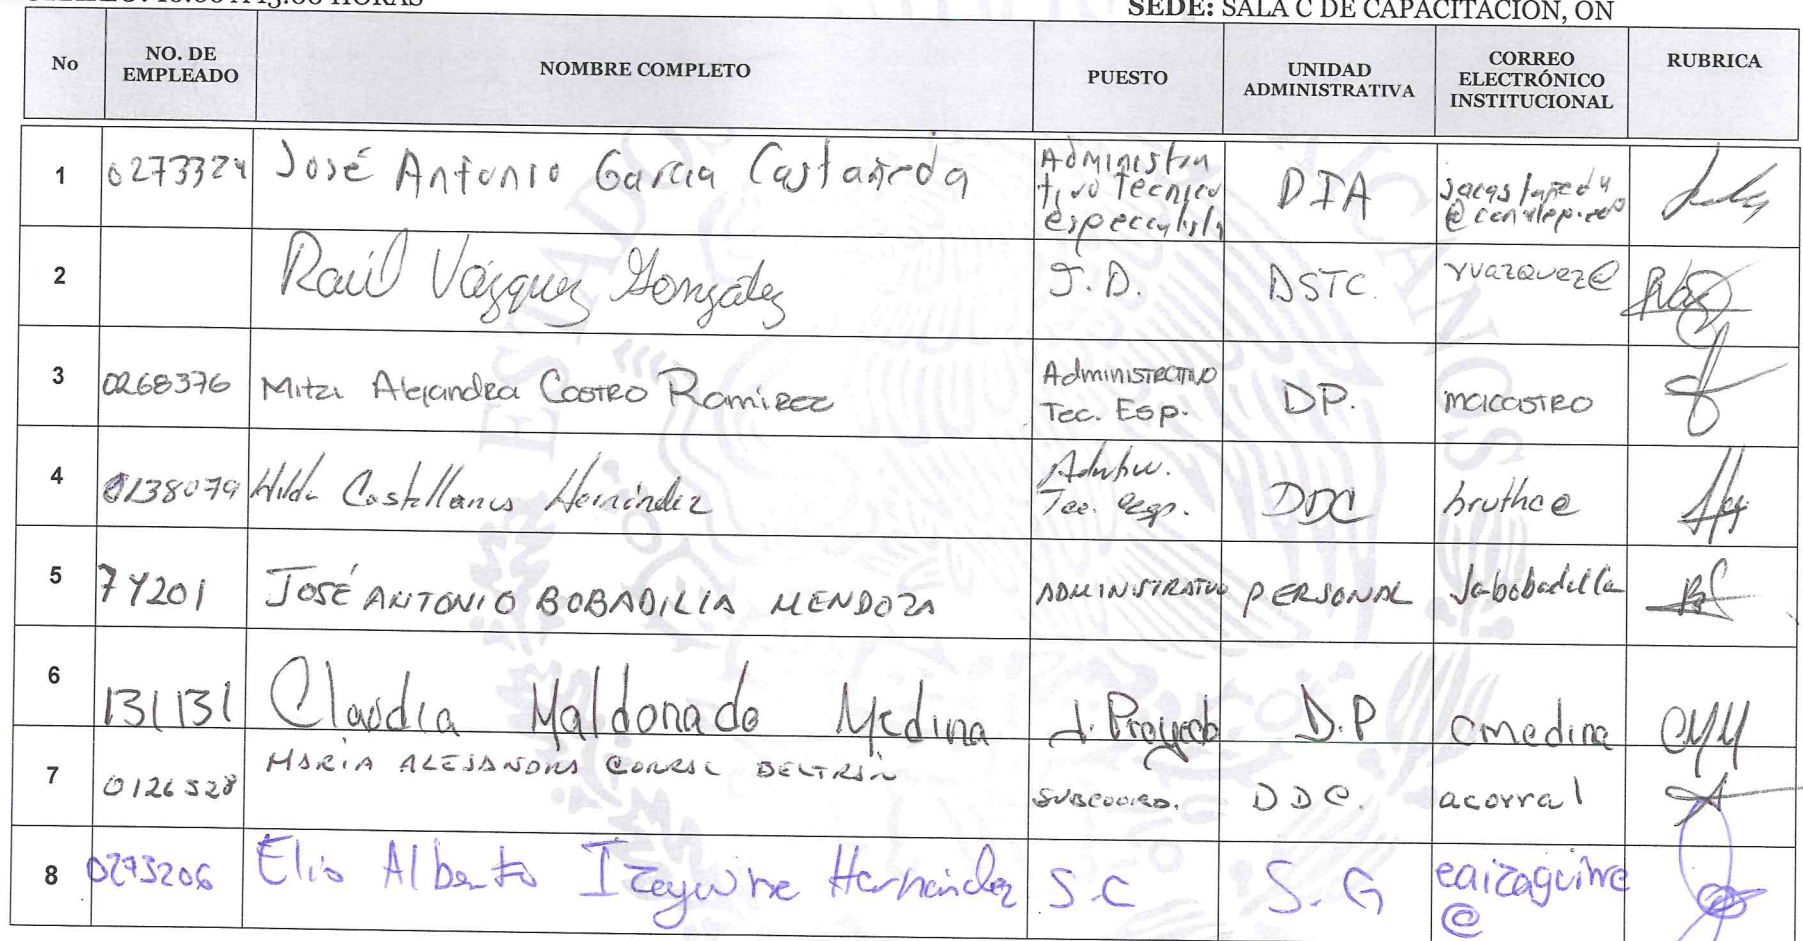 10:00 A 15:00 HORAS
SEDE: SALA C DE CAPACITACIÓN, ON
No NO. DE EMPLEADO NOMBRE COMPLETO PUESTO UNIDAD ADMINISTRATIVA CORREO ELECTRÓNICO INSTITUCIONAL RUBRICA
1 0273324 José Antonio García Castañeda Administra tivo Técnico especialista DIA
2 Raúl Vázquez González J.D. DSTC. rvazquez@
3 0268376 Mitzi Alejandra Castro Ramirez Administrativo Tec. Esp. DP. macastro
4 0138079 Hilda Castellanos Hernández Tec. esp. DDC
5 74201 JOSÉ ANTONIO BOBADILLA MENDOZA ADMINISTRATIVO PERSONAL jabobadilla
6 131131 Claudia Maldonado Medina J. Proyecto D.P cmedina
7 0126528 MARIA ALEJANDRA CORRAL BELTRÁN SUBCOORD. DDC. acorral
8 0273206 Elio Alberto Izaguirre Hernández S.C S.G eaizaguirre @
ESTADOS